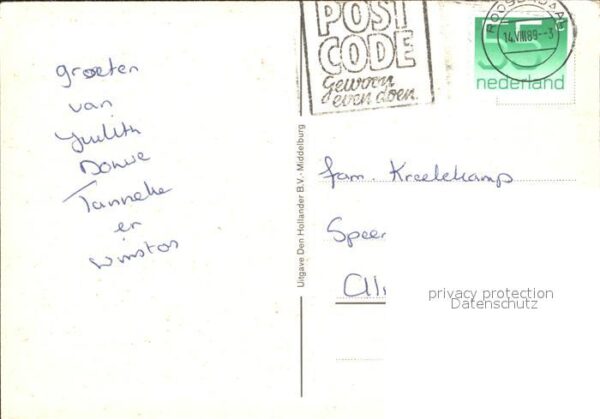 POST
CODE
Gewoon
even doen.
ROOSENDAAL
14.VIII.89.-3
55
nederland
groeten
van
Judith
Douwe
Tanneke
en
Winston
Uitgave Den Hollander B.V. - Middelburg
fam. Kreelekamp
Speer
privacy protection
Datenschutz